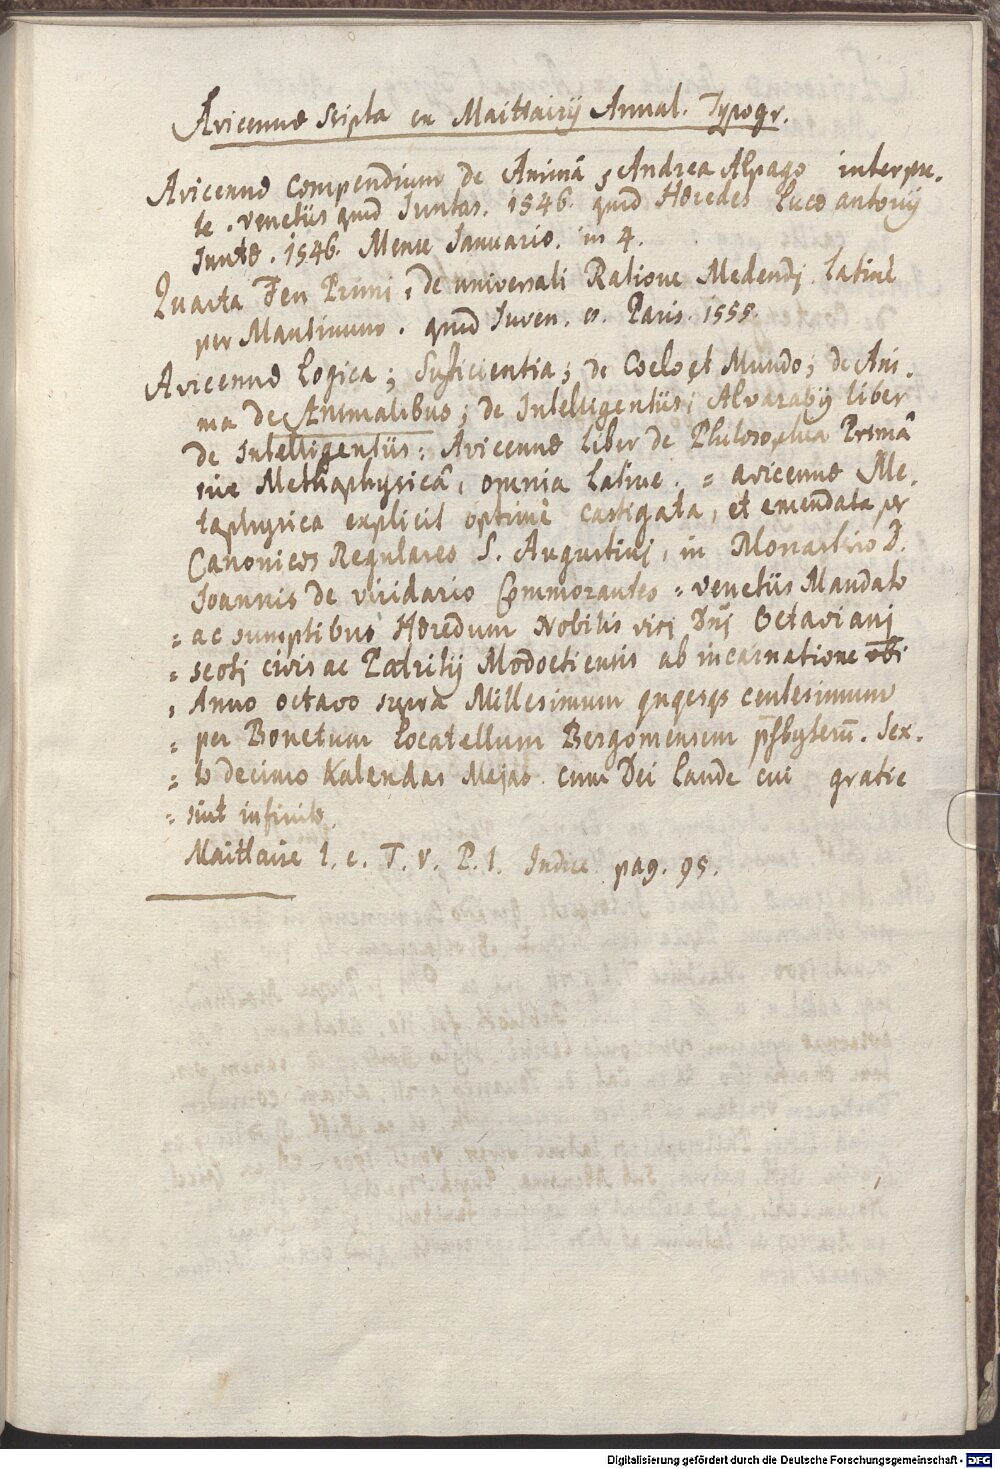 Avicennæ scripta ex Maittairij Annal. Typogr.
Avicennæ Compendium de Animâ, Andrea Alpago interpre-
te. Venetiis apud Juntas. 1546. apud Hæredes Lucæ antonij
Juntæ. 1546. Mense Januario. in 4.
Quarta Fen Primi, de universali Ratione Medendj. Latinè
per Mantinum. apud Juven. 8. Paris. 1555.
Avicennæ Logica; Sufficientia; de Coelo et Mundo; de Ani-
ma de Animalibus; de Intelligentiis; Alvarabij liber
de Intelligentiis; Avicennæ liber de Philosophia Primâ
sive Methaphysicâ, omnia Latine. = avicennæ Me-
taphysica explicit optimè castigata, et emendata per
Canonicos Regulares S. Augustinj, in Monasterio D.
Joannis de viridario Commorantes = Venetiis Mandato
= ac sumptibus Hæredum Nobilis virj Dnj Octavianj
= scotj civis ac Patritij Modoetiensis ab incarnatione
= Anno octavo supra Millesimum centesimum
= per Bonetum Locatellum Bergomensem pſbyterũ. Sex-
= to decimo Kalendas Majas cum Dei laude cui gratie
= sint infinitæ
Maittaire l. c. T. V. P. 1. Indice pag. 95.
Digitalisierung gefördert durch die Deutsche Forschungsgemeinschaft - DFG